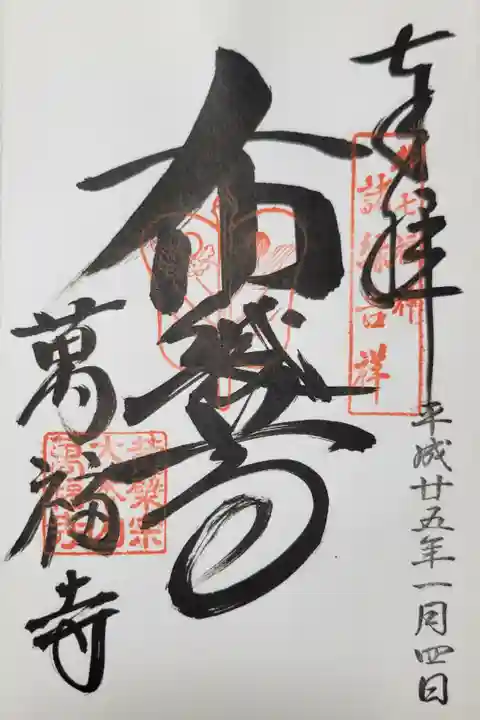 奉拝
都七福神
諸縁吉祥
平成廿五年一月四日
布袋尊
萬福寺
黄檗宗
大本山
萬福寺